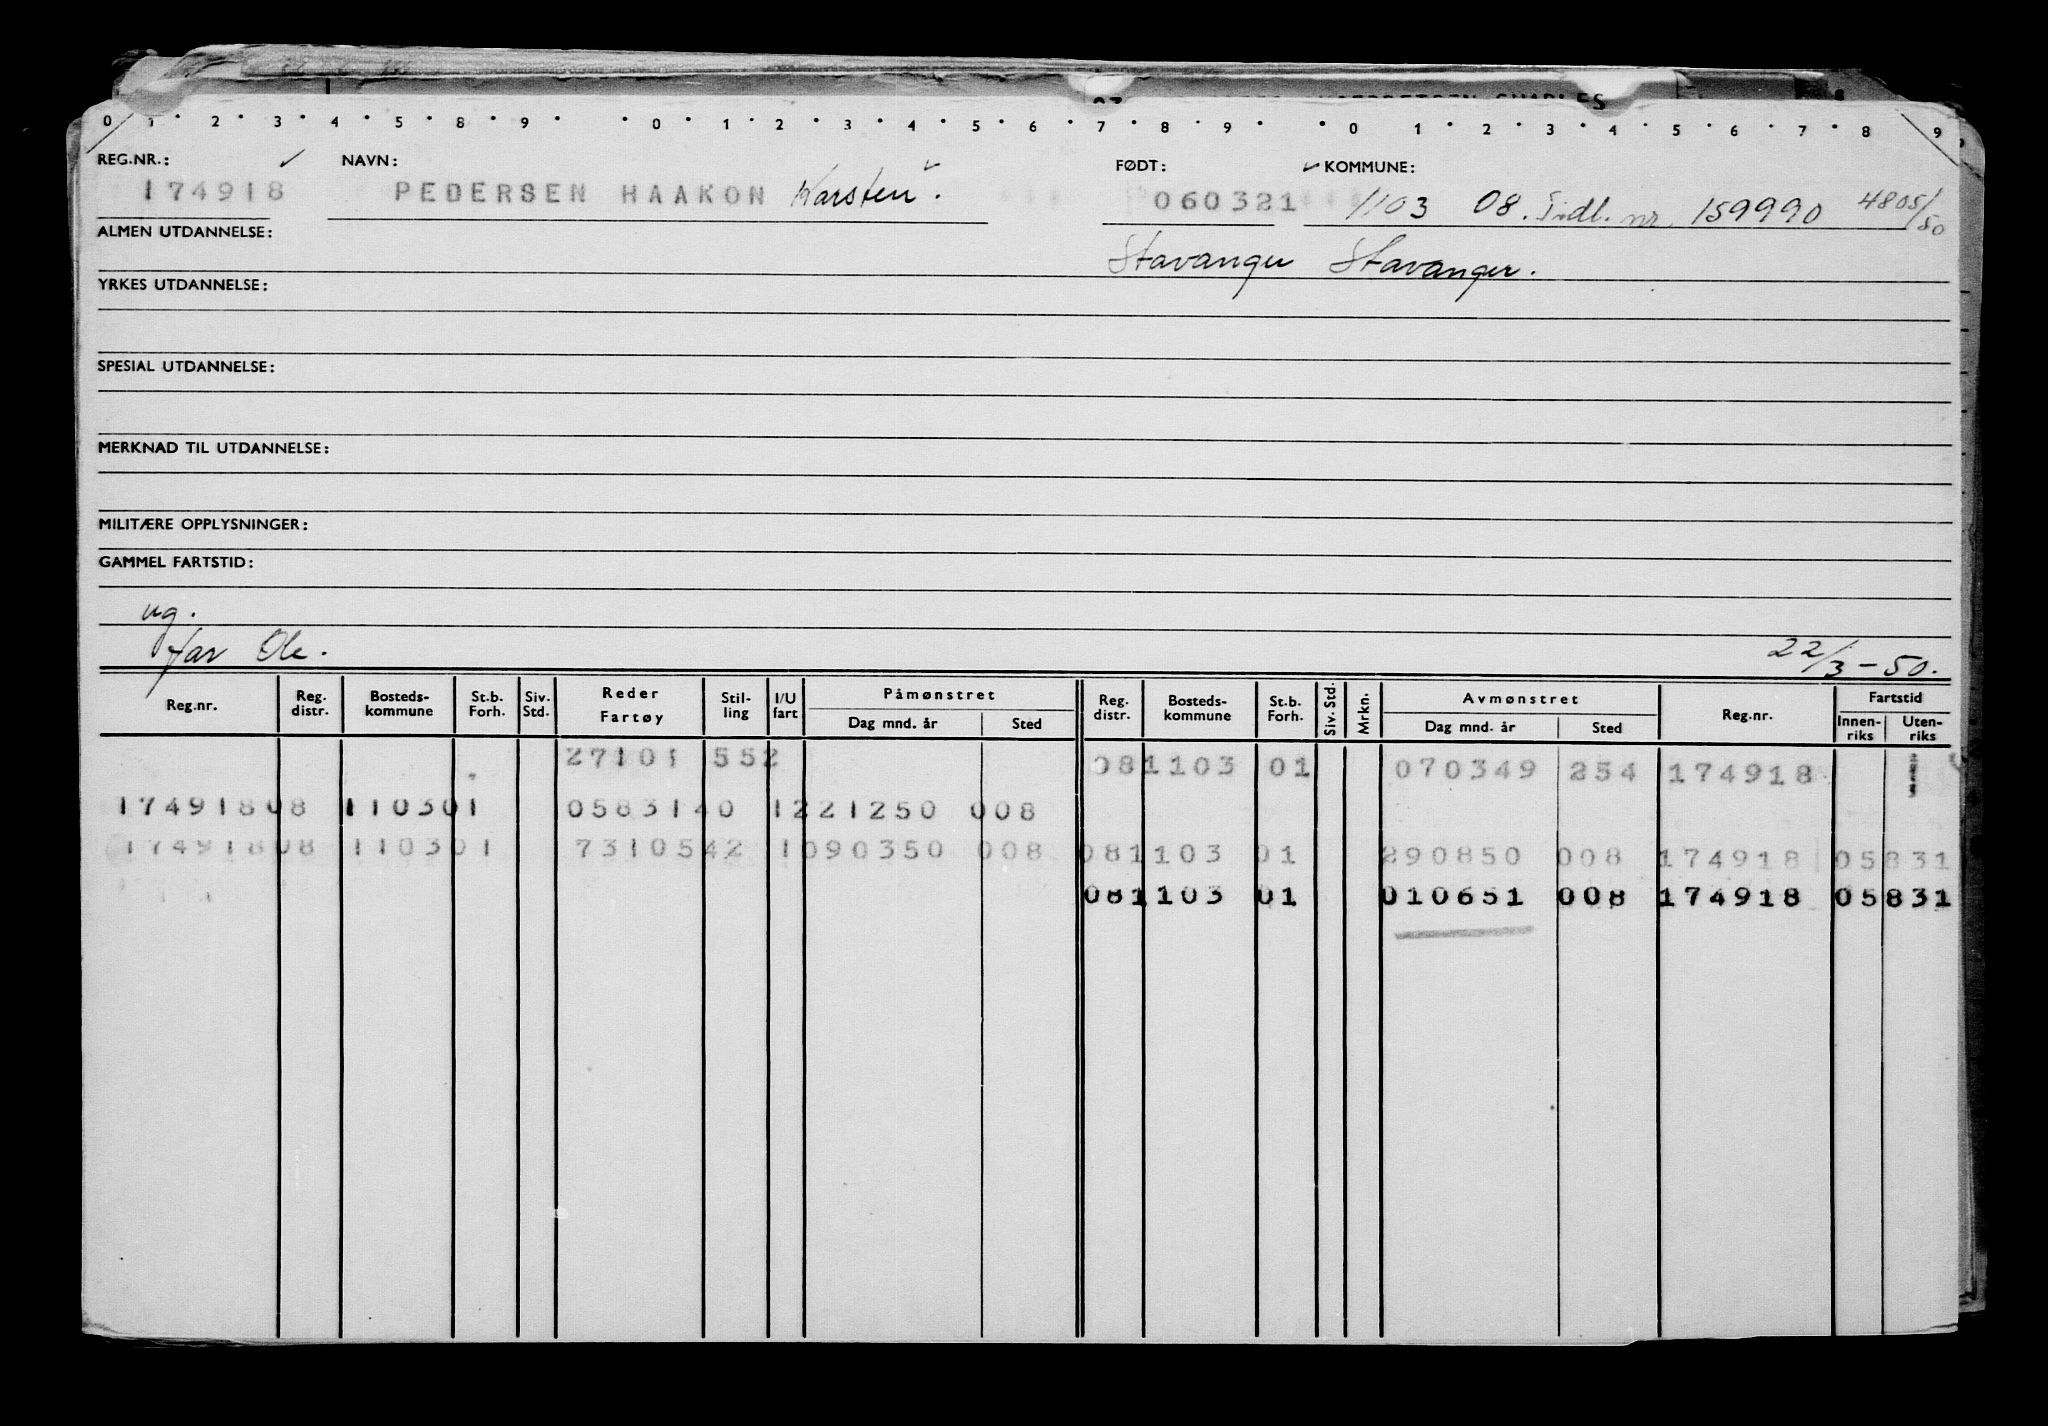 0 1 2 3 4 5 8 9 0 1 2 3 4 5 6 7 8 9 0 1 2 3 4 5 6 7 8 9
REG.NR.: NAVN: FØDT: KOMMUNE:
174918 PEDERSEN HAAKON Karsten. 060321 1103 08. Tidl. nr. 159990 4805/50
ALMEN UTDANNELSE: Stavanger Stavanger.
YRKES UTDANNELSE:
SPESIAL UTDANNELSE:
MERKNAD TIL UTDANNELSE:
MILITÆRE OPPLYSNINGER:
GAMMEL FARTSTID:
ug.
far Ole. 22/3-50.
Reg.nr. Reg. distr. Bosteds-kommune St.b. Forh. Siv. Std. Reder Fartøy Stil-ling I/U fart Påmønstret Dag mnd. år Sted Reg. distr. Bosteds-kommune St.b. Forh. Siv. Std. Mrkn. Avmønstret Dag mnd. år Sted Reg.nr. Fartstid Innen-riks Uten-riks
27101 552 081103 01 070349 254 174918
17491808 110301 0583140 1221250 008
17491808 110301 7310542 1090350 008 081103 01 290850 008 174918 05831
081103 01 010651 008 174918 05831